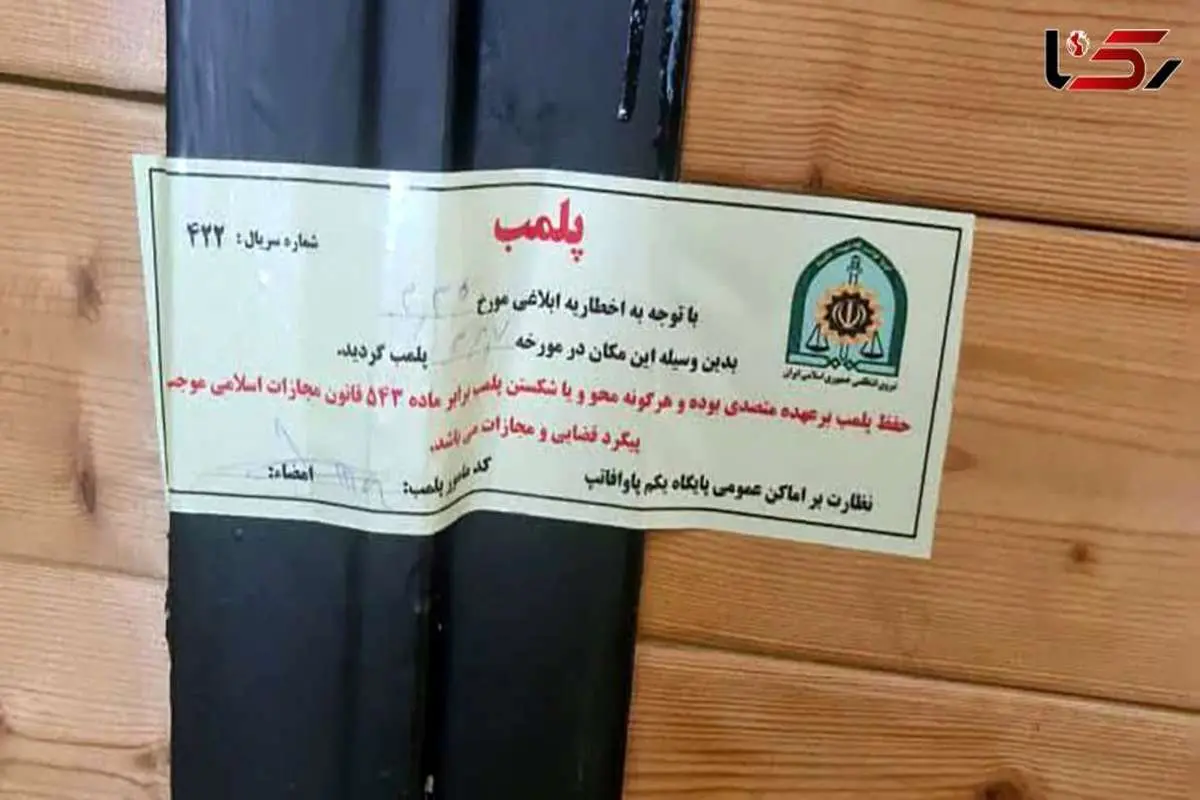 رکنا
پلمب
شماره سریال: ۴۲۲
با توجه به اخطاریه ابلاغی مورخ
بدین وسیله این مکان در مورخه پلمب گردید.
حفظ پلمب برعهده متصدی بوده و هرگونه محو و یا شکستن پلمب برابر ماده ۵۴۳ قانون مجازات اسلامی موجب
پیگرد قضایی و مجازات می باشد.
نظارت بر اماکن عمومی پایگاه یکم پاوافاتب
کد مامور پلمب:
امضاء:
نیروی انتظامی جمهوری اسلامی ایران